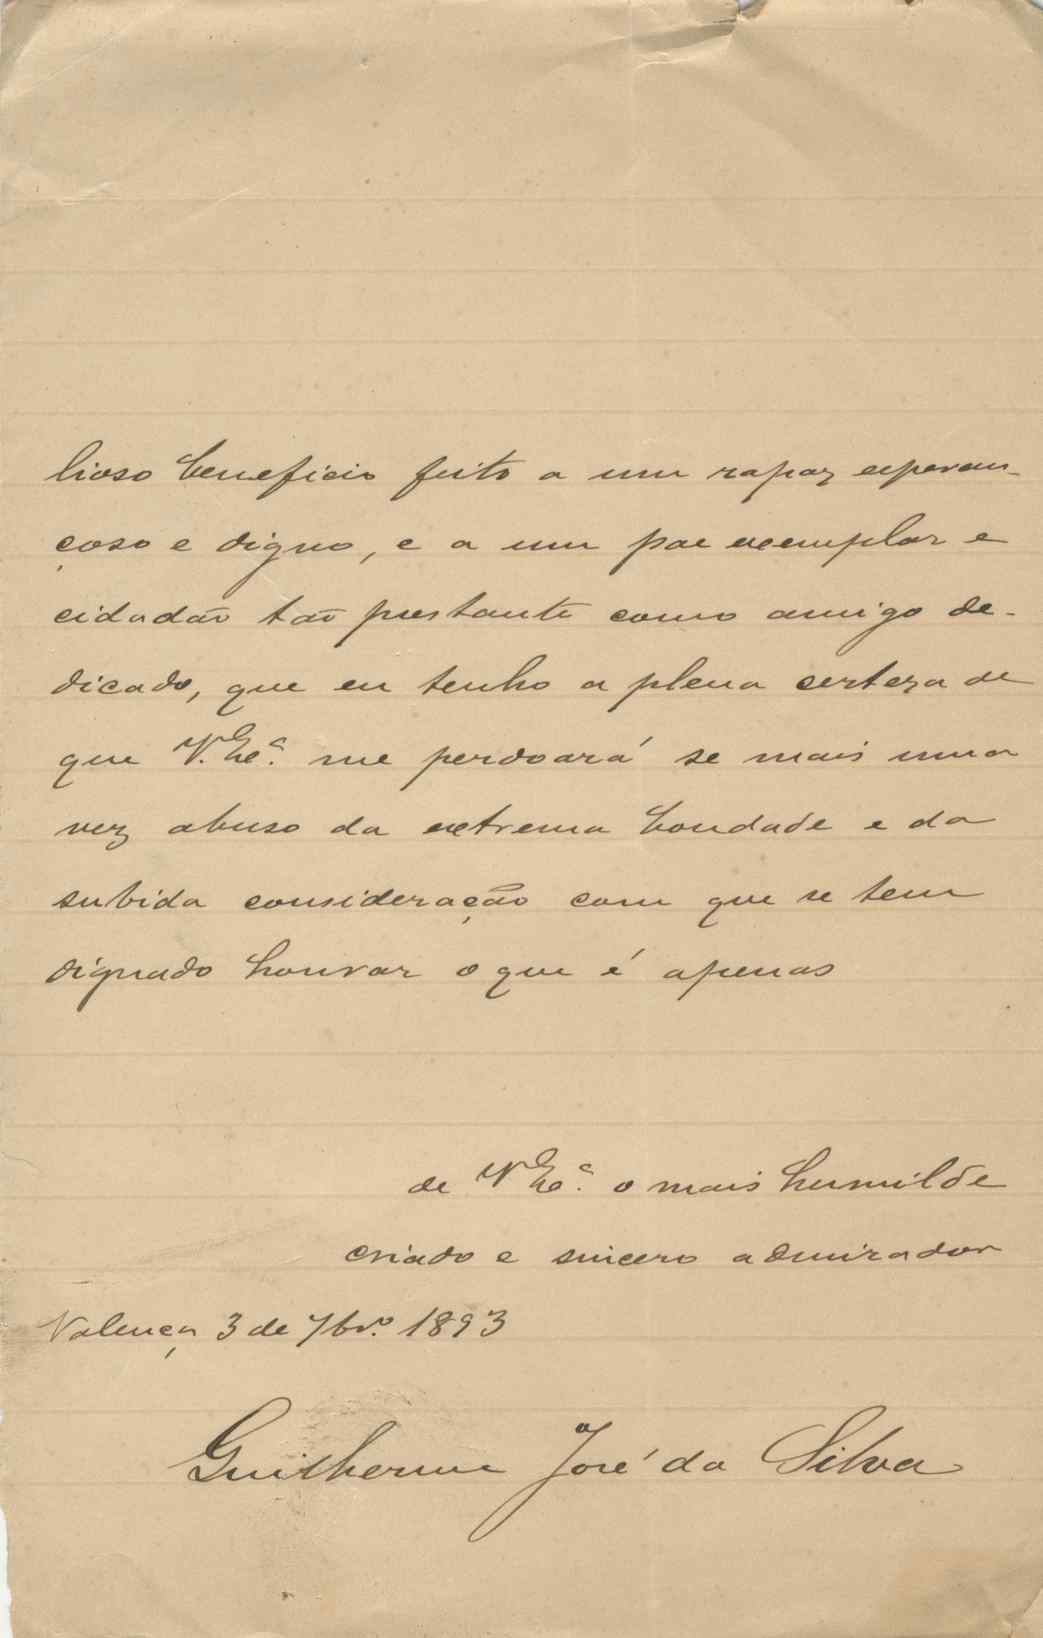 lioso beneficio feito a um rapaz esperan-
çoso e digno, e a um pae exemplar e
cidadão tão prestante como amigo de-
dicado, que eu tenho a plena certeza de
que V. Exª. me perdoará se mais uma
vez abuso da extrema bondade e da
subida consideração com que se tem
dignado honrar o que é apenas
de V Exª. o mais humilde
criado e sincero admirador
Valença 3 de 7brº. 1893
Guilherme José da Silva